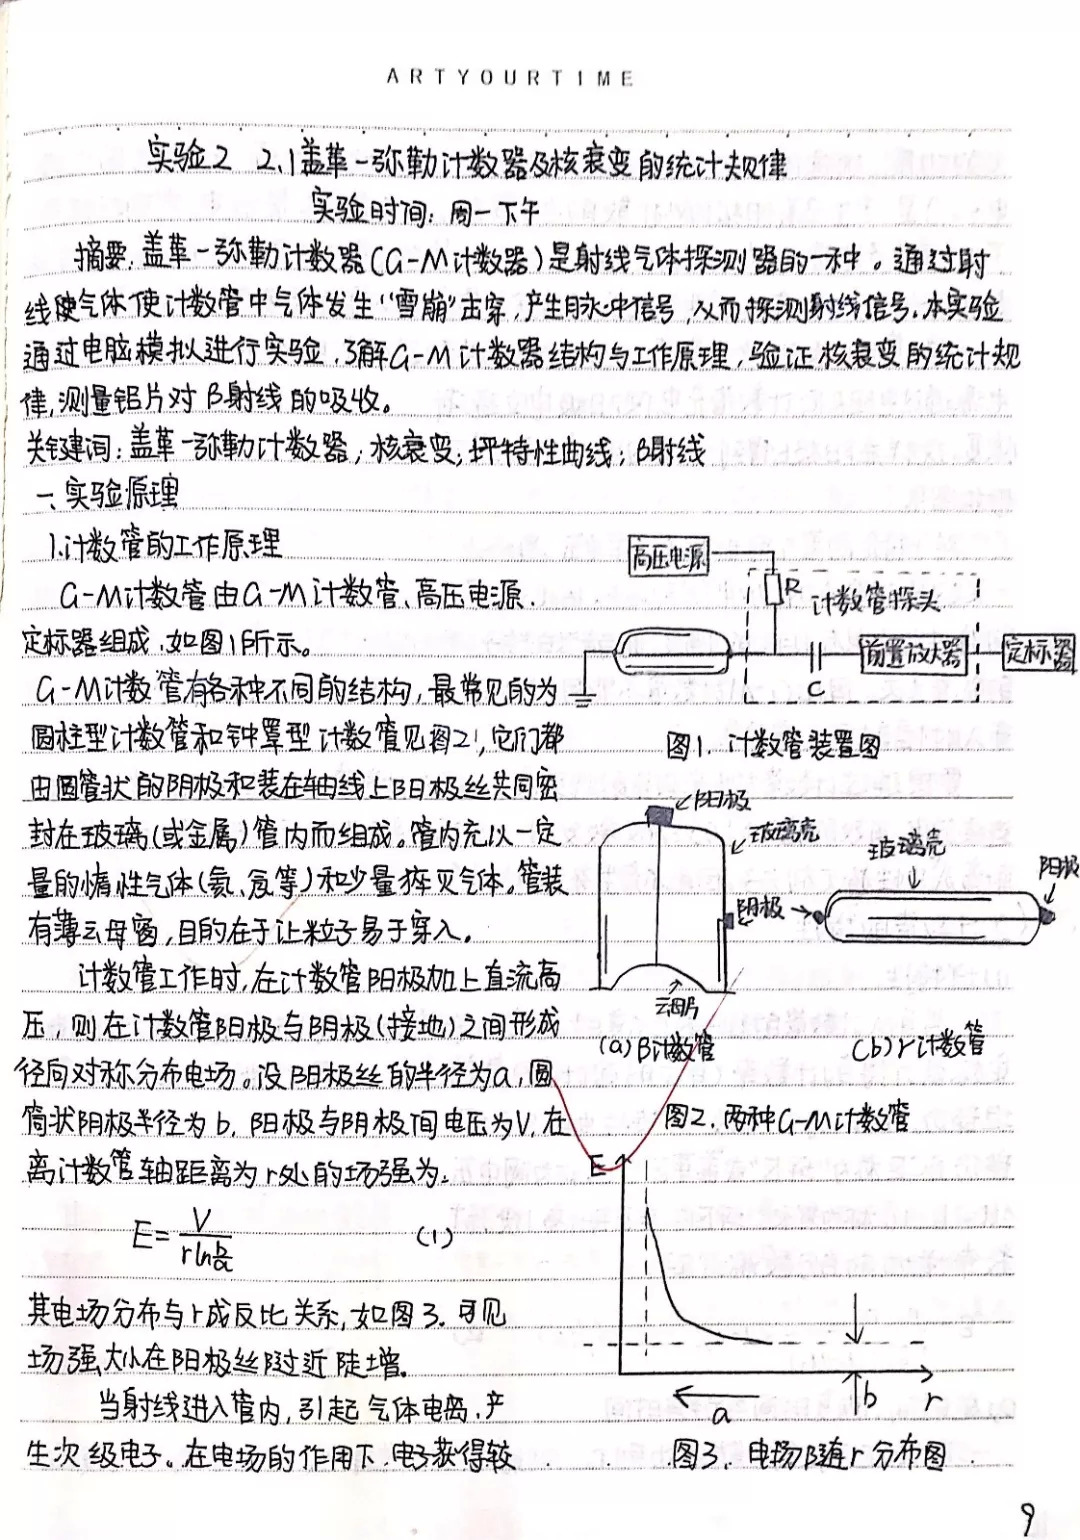 ARTYOURTIME
实验2 2.1盖革-弥勒计数器及核衰变的统计规律
实验时间：周一下午
摘要：盖革-弥勒计数器(G-M计数器)是射线气体探测器的一种。通过射
线使气体使计数管中气体发生“雪崩”击穿，产生脉冲信号，从而探测射线信号。本实验
通过电脑模拟进行实验，了解G-M计数器结构与工作原理，验证核衰变的统计规
律，测量铝片对β射线的吸收。
关键词：盖革-弥勒计数器；核衰变；坪特性曲线；β射线
一、实验原理
1.计数管的工作原理
G-M计数管由G-M计数管、高压电源、
定标器组成，如图1所示。
G-M计数管有各种不同的结构，最常见的为
圆柱型计数管和钟罩型计数管见图2，它们都
由圆管状的阴极和装在轴线上阳极丝共同密
封在玻璃(或金属)管内而组成。管内充以一定
量的惰性气体(氦、氖等)和少量猝灭气体。管装
有薄云母窗，目的在于让粒子易于穿入。
计数管工作时，在计数管阳极加上直流高
压，则在计数管阳极与阴极(接地)之间形成
径向对称分布电场。设阳极丝的半径为a，圆
筒状阴极半径为b，阳极与阴极间电压为V，在
离计数管轴距离为r处的场强为：
E=V/(r ln b/a) (1)
其电场分布与r成反比关系，如图3。可见
场强大小在阳极丝附近陡增。
当射线进入管内，引起气体电离，产
生次级电子。在电场的作用下，电子获得较
高压电源
R
计数管探头
C
前置放大器
定标器
图1. 计数管装置图
阳极
玻璃壳
阴极
云母片
(a)β计数管
玻璃壳
阳极
(b)γ计数管
图2. 两种G-M计数管
E
a
b
r
图3. 电场随r分布图
9